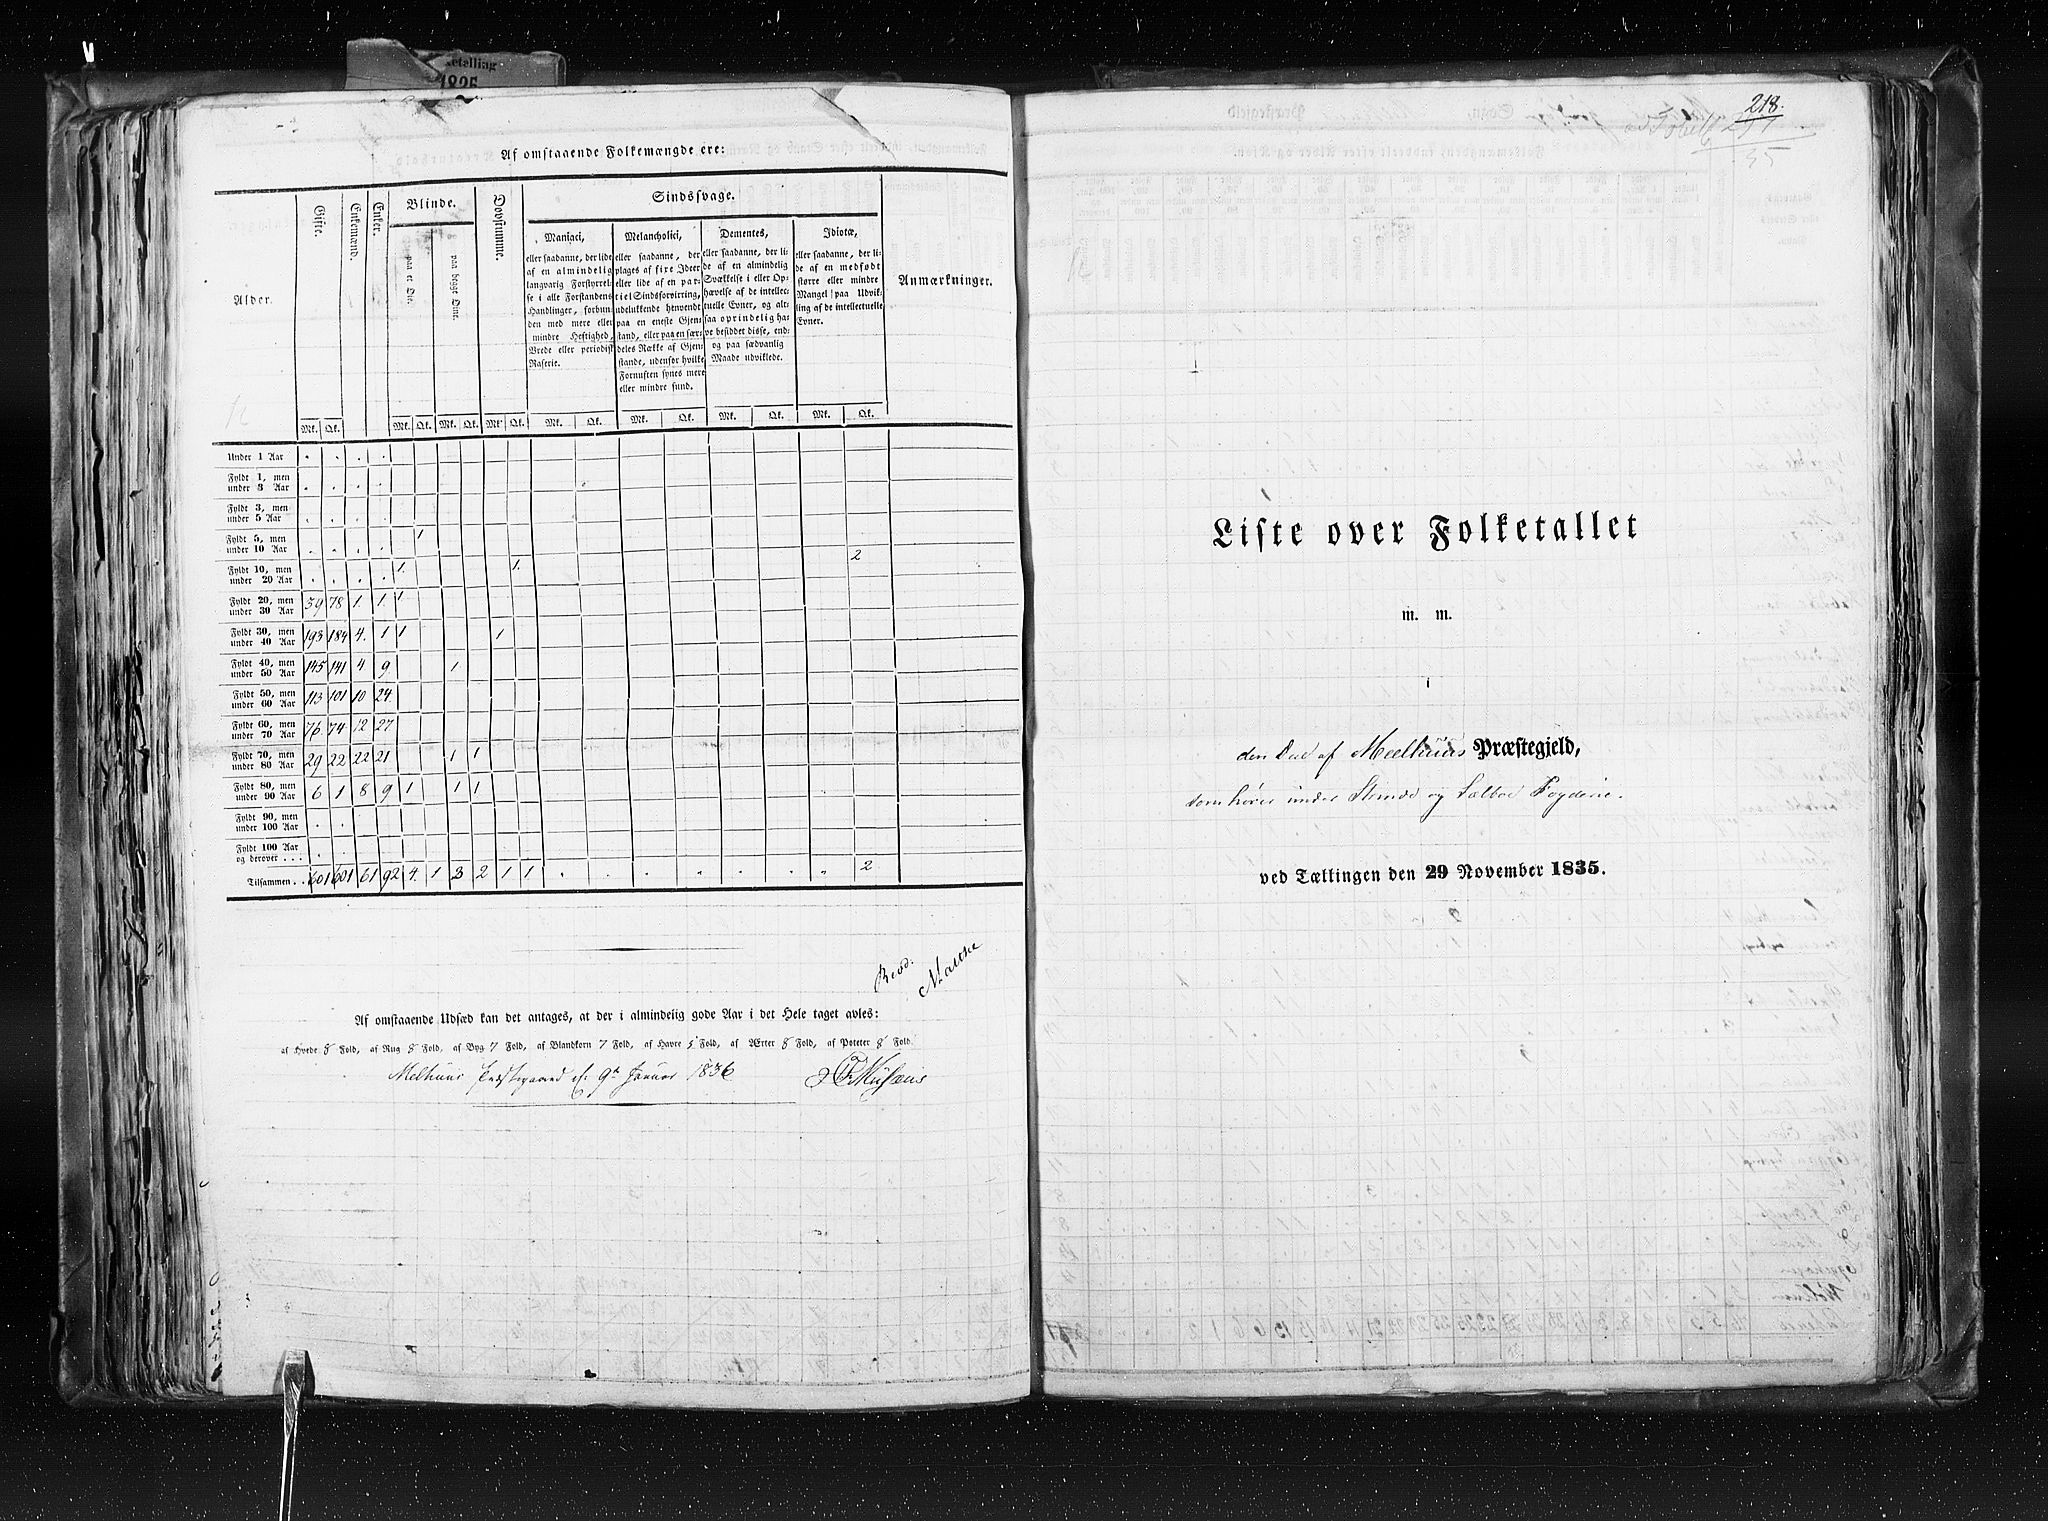 ketælling
1835
Af omstaaende Folkemængde ere:
Alder.
Gifte.
Enkemænd.
Enker.
Blinde.
paa et Øie.
paa begge Øine.
Døvstumme.
Sindssvage.
Maniaci,
eller saadanne, der lide
af en almindelig
langvarig Forstyrrel-
se i alle Forstandens
Handlinger, forbun-
den med mere eller
mindre Heftighed,
Vrede eller periodisk
Raserie.
Melancholici,
eller saadanne, der
plages af fixe Ideer
eller lide af en par-
tiel Sindsforvirring,
udelukkende henvendt
paa en eneste Gjen-
stand, eller paa en sær-
deles Række af Gjen-
stande, udenfor hvilke
Fornuften synes mere
eller mindre sund.
Dementes,
eller saadanne, der li-
de af en almindelig
Svækkelse i eller Op-
hævelse af de intellec-
tuelle Evner, og alt-
saa oprindelig ha-
ve besiddet disse, end-
og paa sædvanlig
Maade udviklede.
Idiotæ,
eller saadanne, der li-
de af en medfødt
større eller mindre
Mangel paa Udvik-
ling af de intellectuelle
Evner.
Anmærkninger.
Mk. Qk. Mk. Qk. Mk. Qk. Mk. Qk. Mk. Qk. Mk. Qk. Mk. Qk. Mk. Qk.
Under 1 Aar . . . .
Fyldt 1, men
under 3 Aar . . . .
Fyldt 3, men
under 5 Aar . . . .
Fyldt 5, men
under 10 Aar . . . . 1
Fyldt 10, men
under 20 Aar . . . . 1. 1. 2
Fyldt 20, men
under 30 Aar 39 78 1. 1. 1
Fyldt 30, men
under 40 Aar 193 184 4. 1 1 1
Fyldt 40, men
under 50 Aar 145 141 4 9. 1
Fyldt 50, men
under 60 Aar 113 101 10 24.
Fyldt 60, men
under 70 Aar 76. 74 12 27
Fyldt 70, men
under 80 Aar 29 22 22 21 1 1
Fyldt 80, men
under 90 Aar 6 1 8 9 1 1 1
Fyldt 90, men
under 100 Aar . .
Fyldt 100 Aar
og derover . . .
Tilsammen . . 601 601 61 92 4. 1 3 2 1 1 2
Revd.
Af omstaaende Udsæd kan det antages, at der i almindelig gode Aar i det Hele taget avles:
af Hvede 8 Fold, af Rug 8 Fold, af Byg 7 Fold, af Blandkorn 7 Fold, af Havre 5 Fold, af Ærter 8 Fold, af Poteter 8 Fold.
Melhuus Præstegaard d. 9de Januar 1836
218.
Liste over Folketallet
m. m.
i
den Deel af Meelhuus Præstegjeld,
som hører under Strinde og Sælboe Fogderie.
ved Tællingen den 29 November 1835.